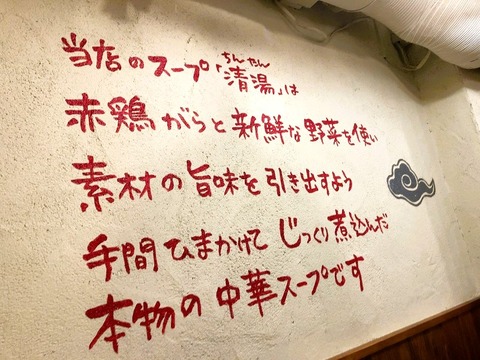 当店のスープ「清湯」は
ちんたん
赤鶏がらと新鮮な野菜を使い
素材の旨味を引き出すよう
手間ひまかけてじっくり煮込んだ
本物の中華スープです